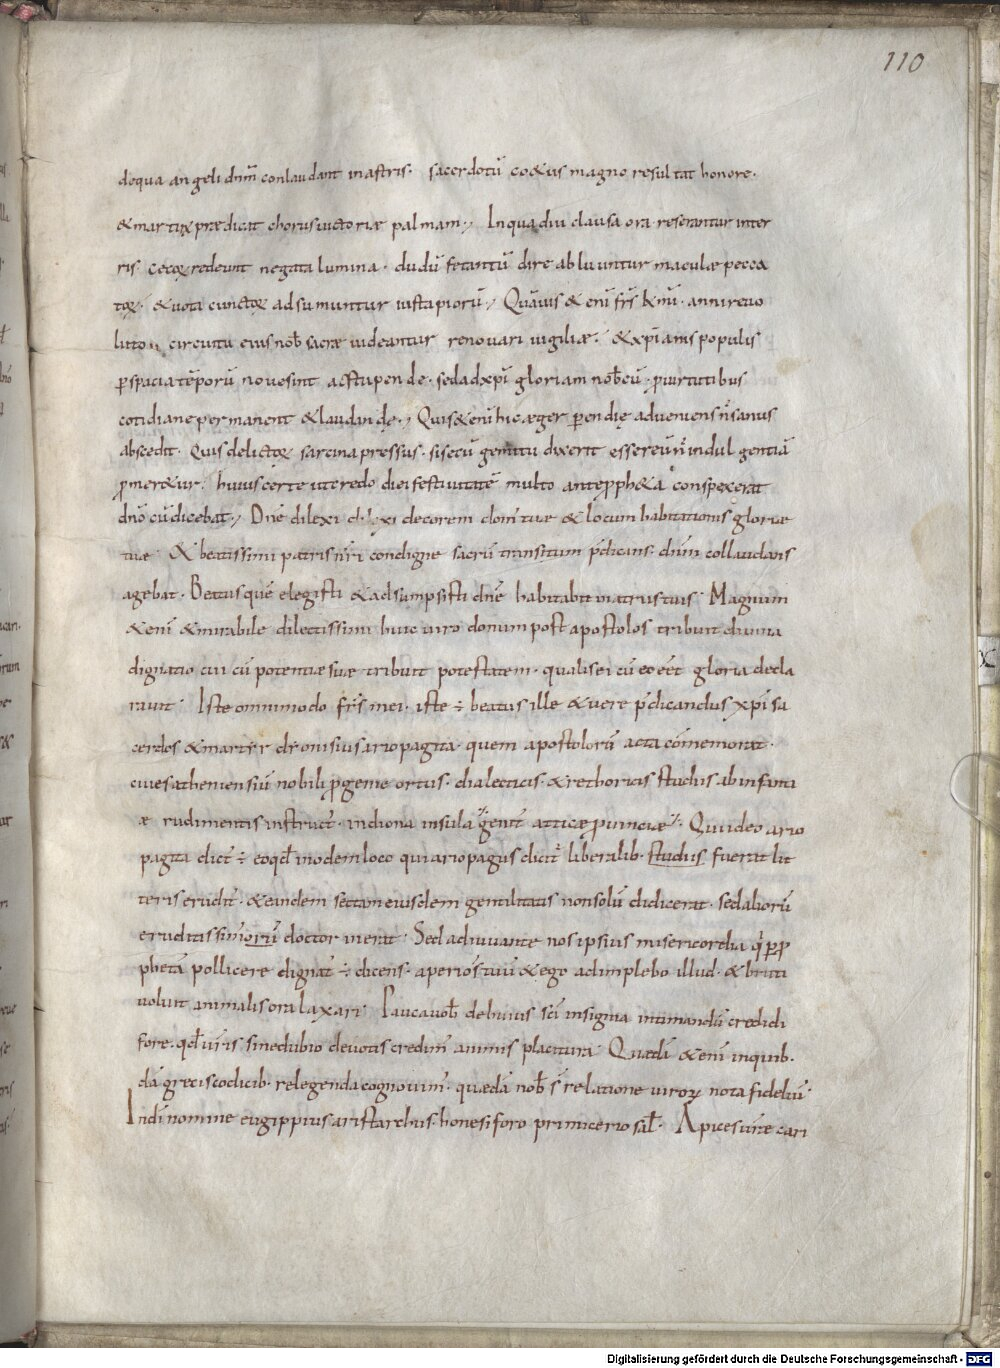 110
dequa angeli dnm̄ conlaudant inastris. sacerdotū coetus magno resultat honore.
& martyrū prædicat chorus uictoriæ palmam; Inqua diu clausa ora reserantur inter
ris. cecorū redeunt negata lumina. dudū fetantū dire abluuntur maculæ pecca
torū. & uota cunctorū adsumuntur iusta piorū; Quāuis & enī frs̄ kmī. anni reuo
luto circuitu eius nob̄ sacræ uideantur renouari uigiliæ. & xp̄ianis populis
ꝑ spacia tēporū nouæ sint ac stupende. sed ad xp̄i gloriam nob̄ cū ꝓ uirtutibus
cotidiane permanent & laudande; Quis & enī hic æger ꝑ endie adueniens n̄ sanus
abscedit. Quis delictorū sarcina pressus. si secū gemitu dixerit esse reū n̄ indulgentiā
ꝓmeretur. huius certe ut credo diei festiuitatē multo ante ꝓpheta conspexerat
dn̄o cū dicebat; Dn̄e dilexi decorem dom' tuæ & locum habitationis gloriæ
tuæ. & beatissimi patris nr̄i condigne sacrū transitum p̄dicans. dnm̄ collaudans
agebat. Beatus quē elegisti & adsumpsisti dn̄e habitabit in atriis tuis. Magnum
& enī & mirabile dilectissimi huic uiro donum post apostolos tribuit diuina
dignatio cui cū potentiæ suæ tribuit potestatem. qualis ei cū eo eēt gloria decla
rauit. Iste omnimodo frs̄ mei. iste ÷ beatus ille & uere p̄dicandus xp̄i sa
cerdos & martyr dionisius ariopagita. quem apostolorū acta cōmemorat.
ciues atheniensiū nobili ꝓgenie ortus. dialecticis. & rethoricis studiis ab infanti
æ rudimentis instruct'. in diona insula gent' atticę ꝓuinciæ. Qui ideo ario
pagita dict' ÷ eo qd̄ in odem loco qui ariopagus dicit' liberalib. studiis fuerat lit
teris erudit'. & eandem sectam eiusdem gentilitatis non solū didicerat. sed aliorū
eruditissimorū doctor inerat. Sed adiuuante nos ipsius misericordia q' ꝑ ꝓ
phetā pollicere dignat' ÷ dicens. aperi os tuū & ego adimplebo illud. & bruti
uoluit animalis ora laxari. Pauca uob̄ de huius sc̄i insignia intimandū credidi
fore. qd̄ uiris sine dubio deuotis credim' animis placitura. Quædā & enī in quib.
dā grecis codicib. relegenda cognouim'. quædā nob̄ s̄ relatione uirorū nota fideliū.
In dī nomine eugippius aristarchus. honesiforo primicerio sal̄. Apices uræ cari
Digitalisierung gefördert durch die Deutsche Forschungsgemeinschaft - DFG